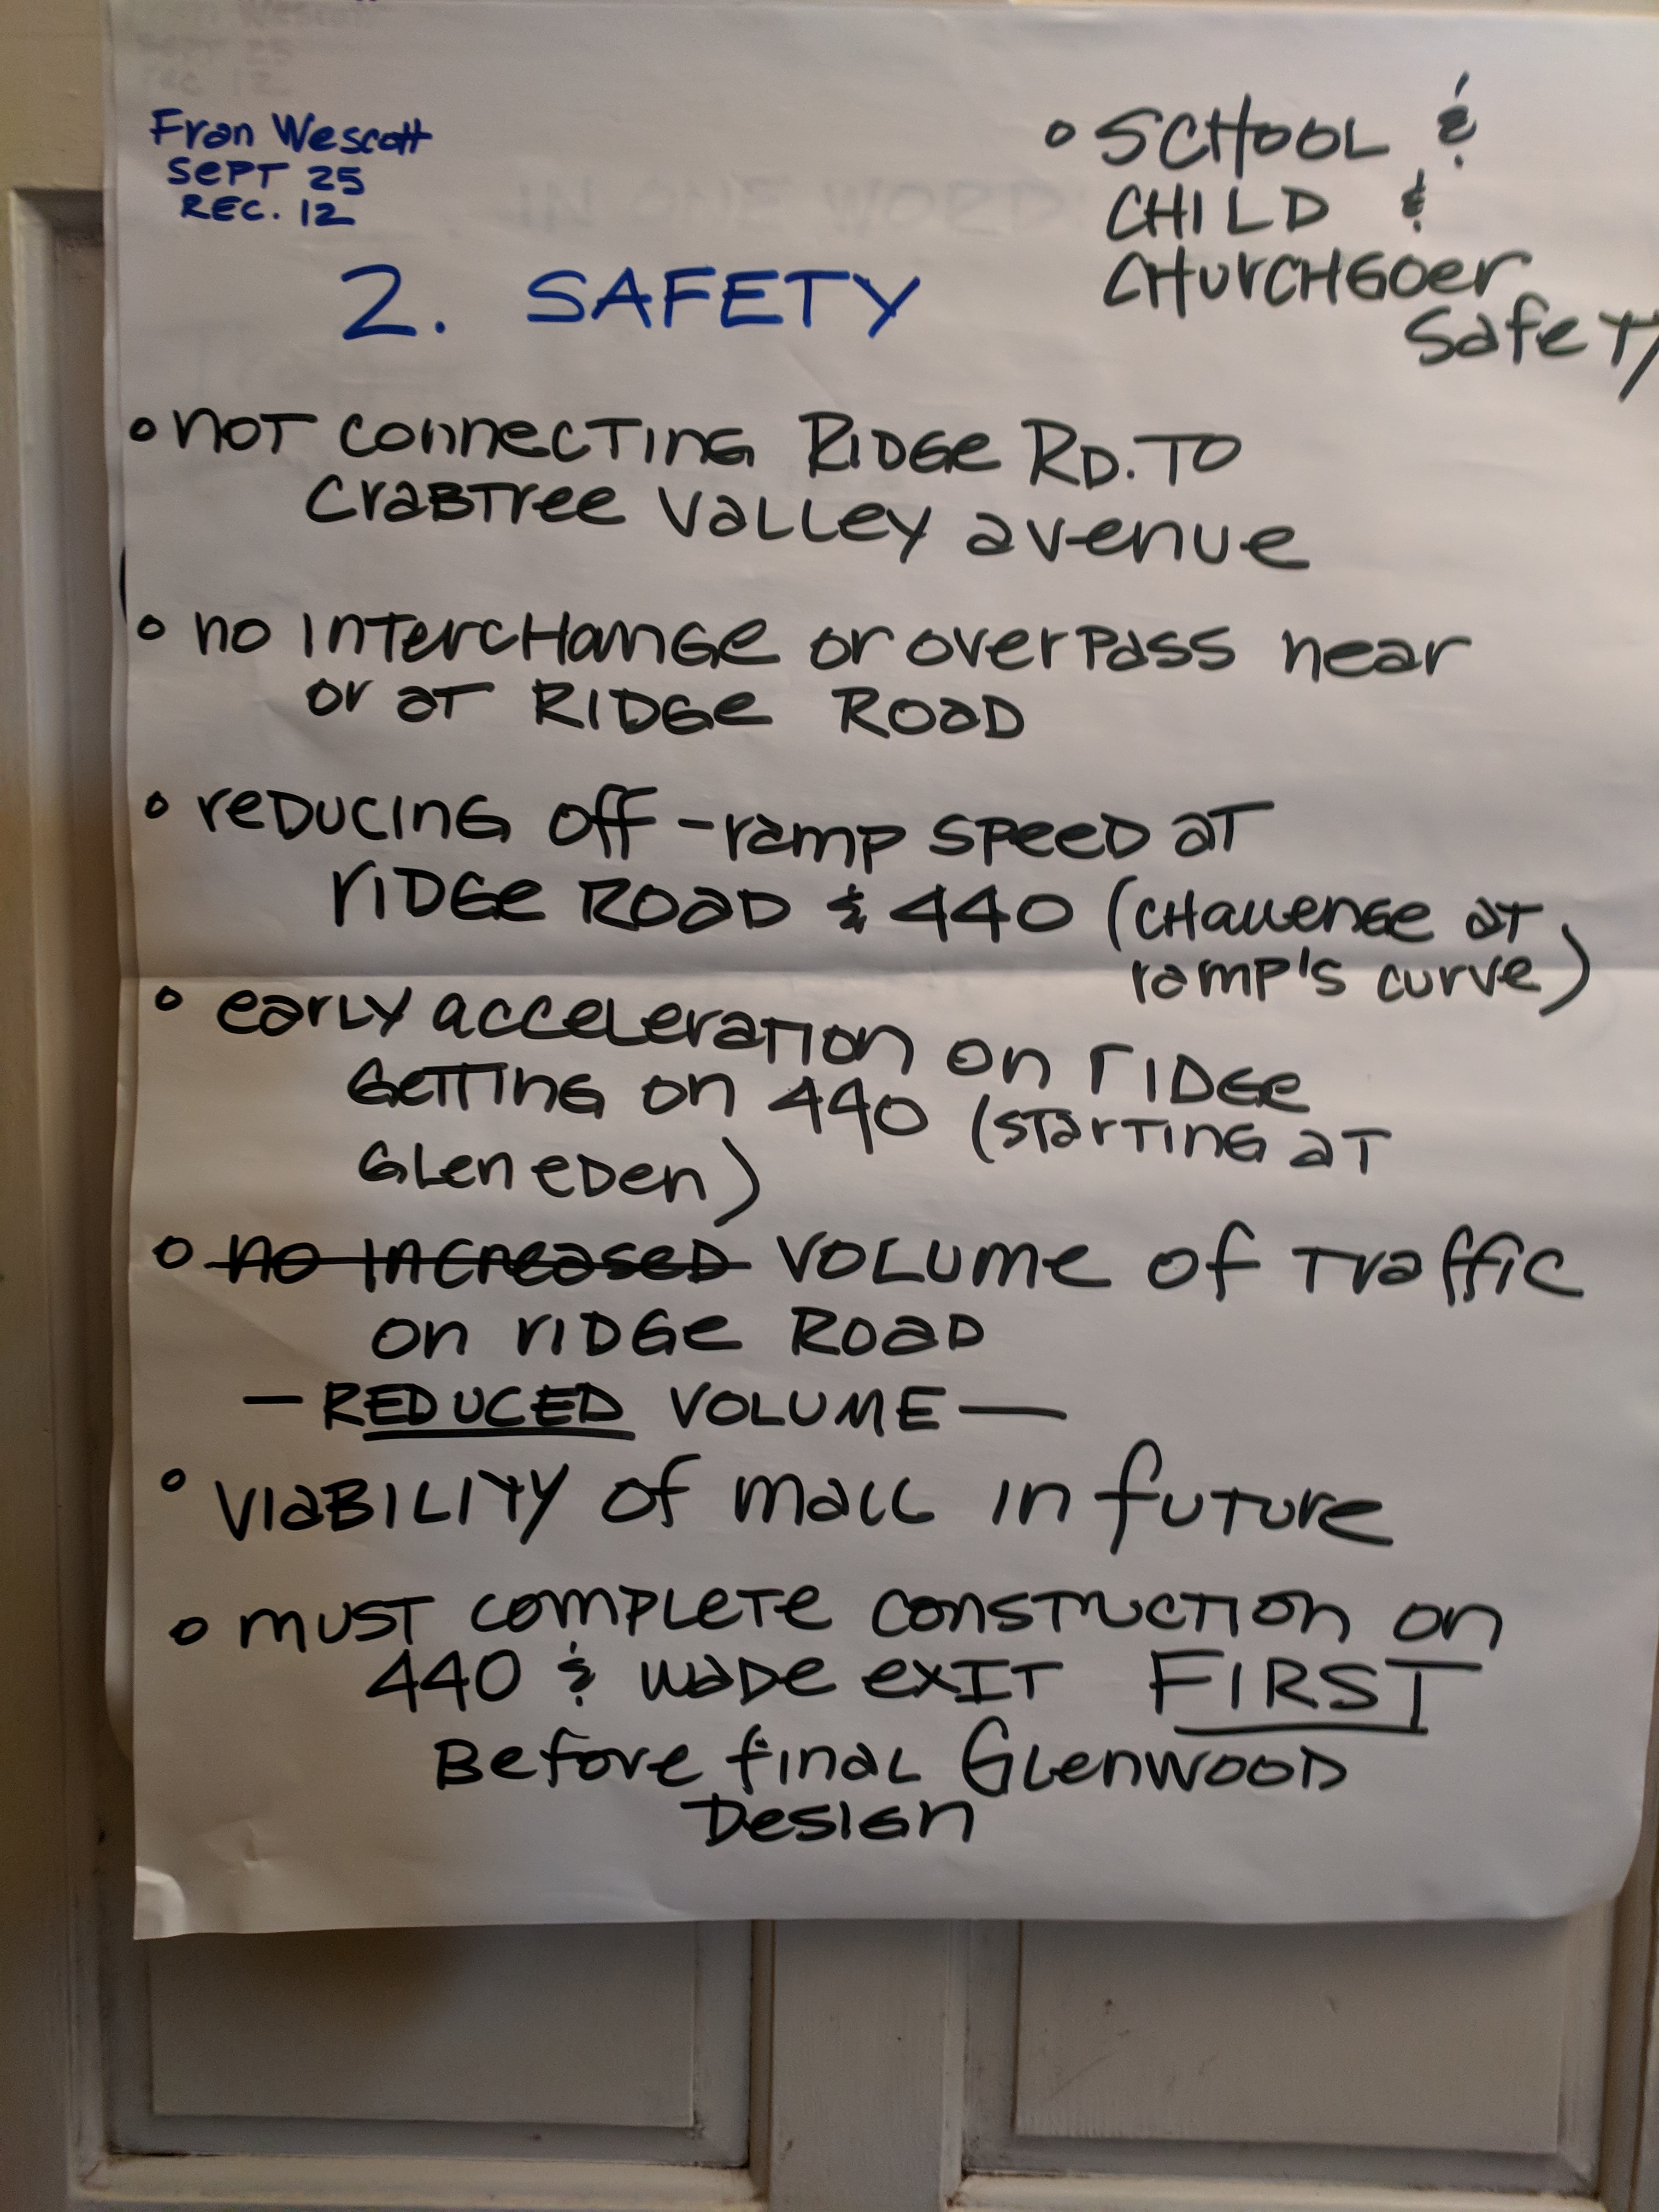 Fran Wescott
SEPT 25
REC. 12
2. SAFETY
• SCHOOL &
CHILD &
CHURCHGOER
SAFETY
• NOT CONNECTING RIDGE RD. TO
CRABTREE VALLEY AVENUE
• NO INTERCHANGE OR OVERPASS NEAR
OR AT RIDGE ROAD
• REDUCING OFF-RAMP SPEED AT
RIDGE ROAD & 440 (CHALLENGE AT
RAMP'S CURVE)
• EARLY ACCELERATION ON RIDGE
GETTING ON 440 (STARTING AT
GLEN EDEN)
• NO INCREASED VOLUME OF TRAFFIC
ON RIDGE ROAD
— REDUCED VOLUME —
• VIABILITY OF MALL IN FUTURE
• MUST COMPLETE CONSTRUCTION ON
440 & WADE EXIT FIRST
BEFORE FINAL GLENWOOD
DESIGN